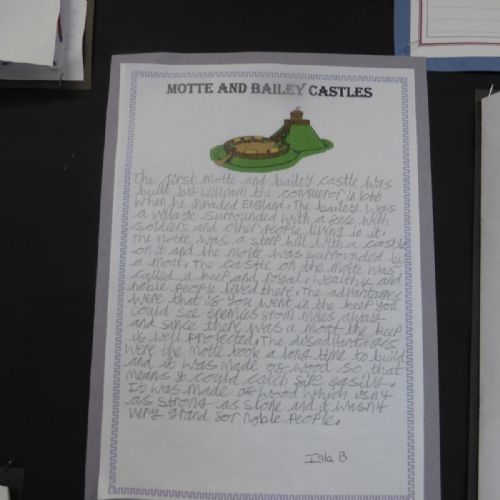 MOTTE AND BAILEY CASTLES
The first motte and bailey castle was
built by William the conqueror in 1066
when he invaded England. The bailey was
a village surrounded with a fence with
soldiers and other people living in it.
The motte was a steep hill with a castle
on it and the motte was surrounded by
a moat. The castle on the motte was
called a keep and royal, wealthy and
noble people lived there. The advantages
were that if you went in the keep you
could see enemies from miles away
and since there was a moat the keep
is well protected. The disadvantages
were the motte took a long time to build
and it was made of wood so that
means it could catch fire easily.
It was made of wood which isn't
as strong as stone and it wasn't
very grand for noble people.
Isla B